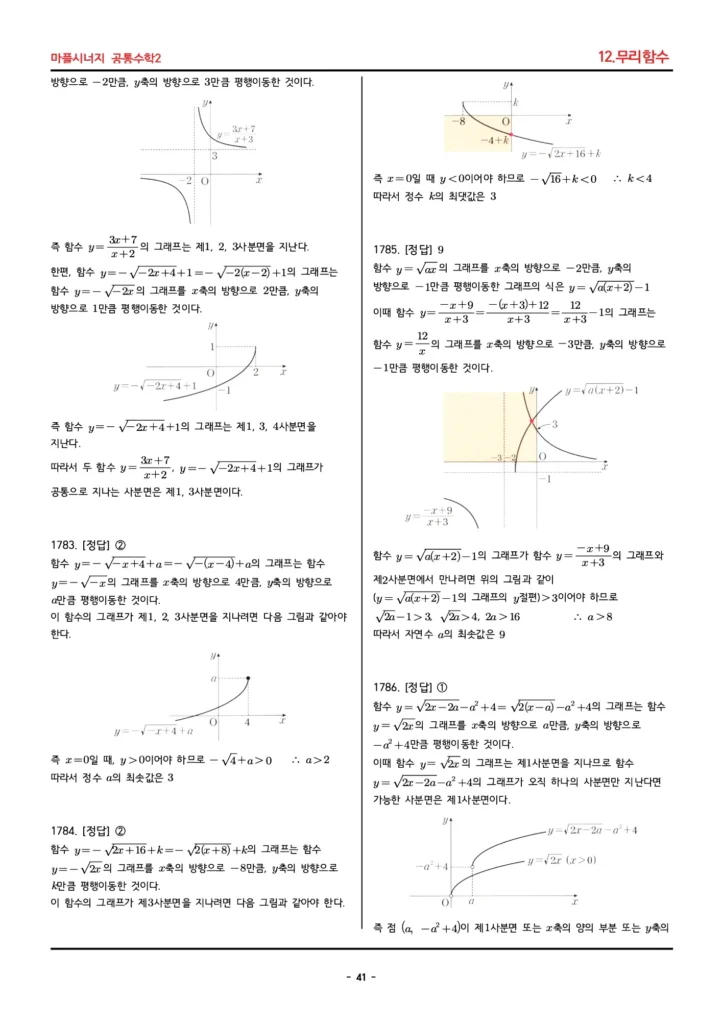 마플시너지 공통수학2
12.무리함수
방향으로 −2만큼, y축의 방향으로 3만큼 평행이동한 것이다.
y
y=\frac{3x+7}{x+3}
3
−2 O x
즉 함수 y=\frac{3x+7}{x+2}의 그래프는 제1, 2, 3사분면을 지난다.
한편, 함수 y=−√(−2x+4)+1=−√(−2(x−2))+1의 그래프는
함수 y=−√(−2x)의 그래프를 x축의 방향으로 2만큼, y축의
방향으로 1만큼 평행이동한 것이다.
y
1
O 2 x
y=−√(−2x+4)+1
−1
즉 함수 y=−√(−2x+4)+1의 그래프는 제1, 3, 4사분면을
지난다.
따라서 두 함수 y=\frac{3x+7}{x+2}, y=−√(−2x+4)+1의 그래프가
공통으로 지나는 사분면은 제1, 3사분면이다.
1783. [정답] ②
함수 y=−√(−x+4)+a=−√(−(x−4))+a의 그래프는 함수
y=−√(−x)의 그래프를 x축의 방향으로 4만큼, y축의 방향으로
a만큼 평행이동한 것이다.
이 함수의 그래프가 제1, 2, 3사분면을 지나려면 다음 그림과 같아야
한다.
y
a
O 4 x
y=−√(−x+4)+a
즉 x=0일 때, y>0이어야 하므로 −√4+a>0 ∴ a>2
따라서 정수 a의 최솟값은 3
1784. [정답] ②
함수 y=−√(2x+16)+k=−√(2(x+8))+k의 그래프는 함수
y=−√(2x)의 그래프를 x축의 방향으로 −8만큼, y축의 방향으로
k만큼 평행이동한 것이다.
이 함수의 그래프가 제3사분면을 지나려면 다음 그림과 같아야 한다.
y
k
−8 O x
−4+k
y=−√(2x+16)+k
즉 x=0일 때 y<0이어야 하므로 −√16+k<0 ∴ k<4
따라서 정수 k의 최댓값은 3
1785. [정답] 9
함수 y=√(ax)의 그래프를 x축의 방향으로 −2만큼, y축의
방향으로 −1만큼 평행이동한 그래프의 식은 y=√(a(x+2))−1
이때 함수 y=\frac{−x+9}{x+3}=\frac{−(x+3)+12}{x+3}=\frac{12}{x+3}−1의 그래프는
함수 y=\frac{12}{x}의 그래프를 x축의 방향으로 −3만큼, y축의 방향으로
−1만큼 평행이동한 것이다.
y y=√(a(x+2))−1
3
−3 −2 O x
−1
y=\frac{−x+9}{x+3}
함수 y=√(a(x+2))−1의 그래프가 함수 y=\frac{−x+9}{x+3}의 그래프와
제2사분면에서 만나려면 위의 그림과 같이
(y=√(a(x+2))−1의 그래프의 y절편)>3이어야 하므로
√(2a)−1>3, √(2a)>4, 2a>16 ∴ a>8
따라서 자연수 a의 최솟값은 9
1786. [정답] ①
함수 y=√(2x−2a)−a²+4=√(2(x−a))−a²+4의 그래프는 함수
y=√(2x)의 그래프를 x축의 방향으로 a만큼, y축의 방향으로
−a²+4만큼 평행이동한 것이다.
이때 함수 y=√(2x)의 그래프는 제1사분면을 지나므로 함수
y=√(2x−2a)−a²+4의 그래프가 오직 하나의 사분면만 지난다면
가능한 사분면은 제1사분면이다.
y
y=√(2x−2a)−a²+4
−a²+4
y=√(2x) (x>0)
O a x
즉 점 (a, −a²+4)이 제1사분면 또는 x축의 양의 부분 또는 y축의
- 41 -